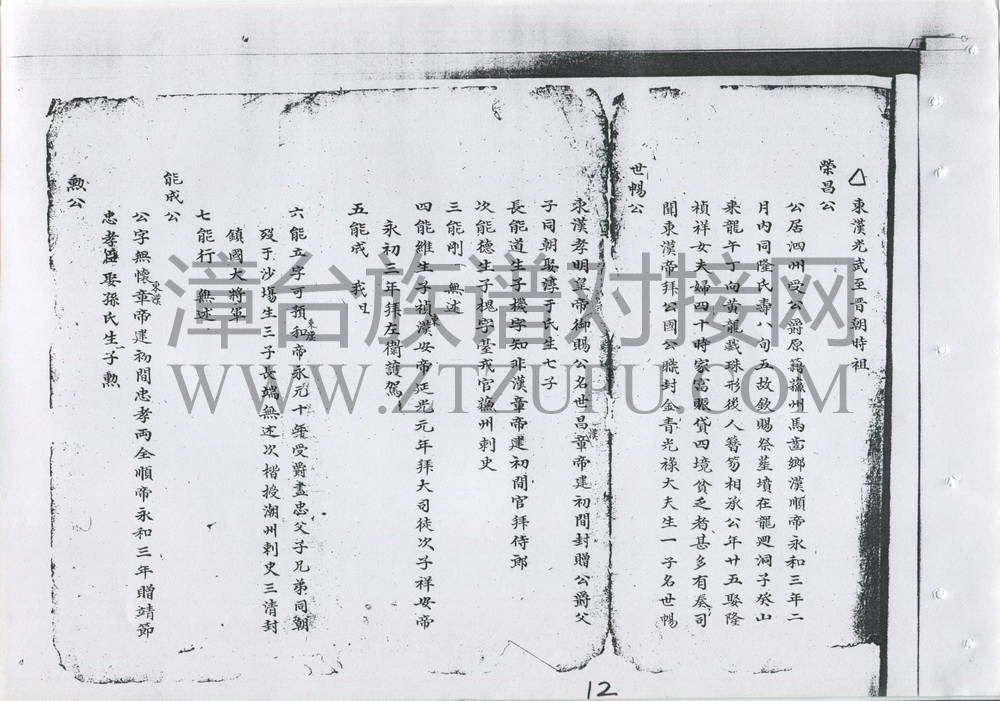 △東漢光武至晉朝時祖
榮昌公
公居泗州受公爵原籍 州馬 鄉漢順帝永和三年二
月內同隆氏壽八旬五故敘賜祭塋墳在龍迴洞子癸山
來龍午丁向黃龍戲珠形後人簪笏相承公年廿五娶隆
禎祥女夫婦四十時家富賑貸四境貧乏者甚多有奏司
聞東漢帝拜公國公職封金青光祿大夫生一子名世暢
世暢公
東漢孝明皇帝御賜公名世昌章帝建初間封贈公爵父
漢
子同朝娶淳于氏生七子
長能道生子機字知非漢章帝建初間官拜侍郎
次能德生子槐字 戎官 州刺史
三能剛 無述
四能維生子禎漢安帝延光元年拜大司徒次子祥安帝
永初三年拜左衛護駕
五能成
六能立字可預和帝永元十年受爵盡忠父子兄弟同朝
東漢
歿于沙塲生三子長端無述次楷授潮州刺史三清封
鎮國大將軍
七能行 無述
能成公
公字無懷章帝建初間忠孝兩全順帝永和三年贈靖節
東漢
忠孝 娶孫氏生子勲
勲公
12
漳台族谱对接网
WWW.ZTZUPU.COM